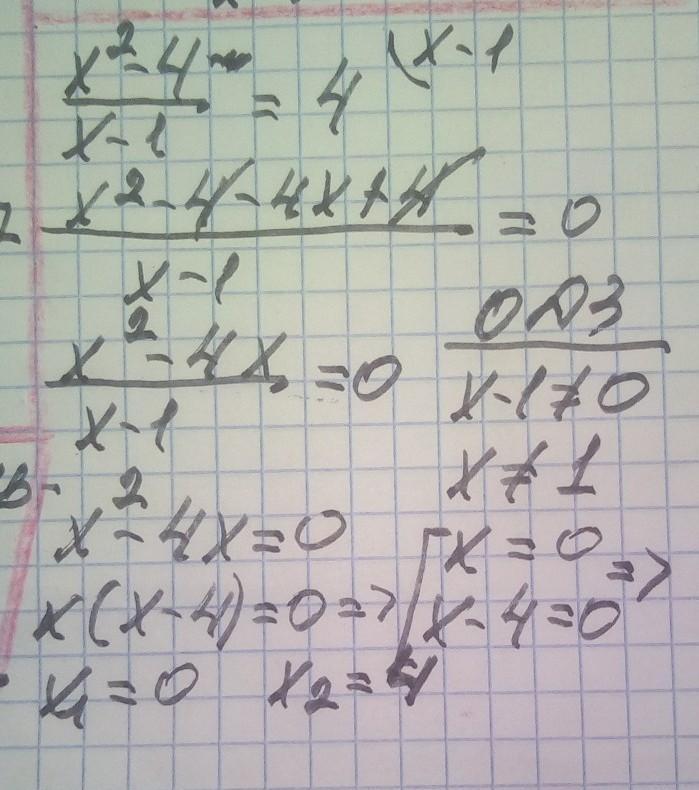 x² - 4
x - 1
= 4 \x - 1
x² - 4 - 4x + 4
x - 1
= 0
x² - 4x
x - 1
= 0
ОДЗ
x - 1 ≠ 0
x ≠ 1
x² - 4x = 0
x(x - 4) = 0 =>
x = 0
x - 4 = 0
=>
x₁ = 0 x₂ = 4